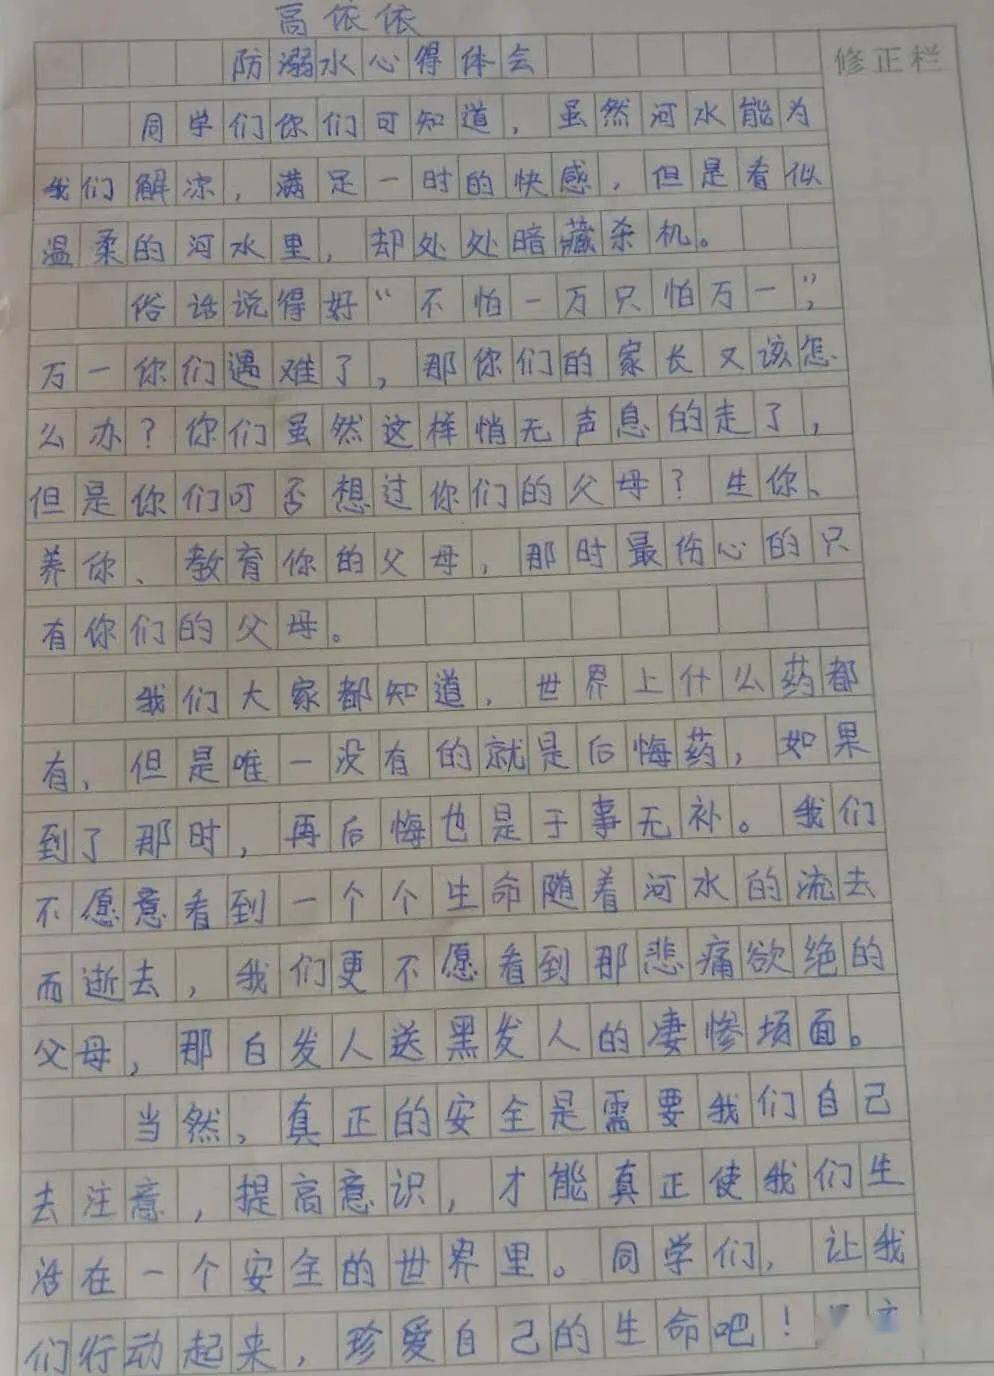 高依依
防溺水心得体会
修正栏
同学们你们可知道，虽然河水能为
我们解凉，满足一时的快感，但是看似
温柔的河水里，却处处暗藏杀机。
俗话说得好“不怕一万只怕万一”，
万一你们遇难了，那你们的家长又该怎
么办？你们虽然这样悄无声息的走了，
但是你们可否想过你们的父母？生你、
养你、教育你的父母，那时最伤心的只
有你们的父母。
我们大家都知道，世界上什么药都
有，但是唯一没有的就是后悔药，如果
到了那时，再后悔也是于事无补。我们
不愿意看到一个个生命随着河水的流去
而逝去，我们更不愿看到那悲痛欲绝的
父母，那白发人送黑发人的凄惨场面。
当然，真正的安全是需要我们自己
去注意，提高意识，才能真正使我们生
活在一个安全的世界里。同学们，让我
们行动起来，珍爱自己的生命吧！